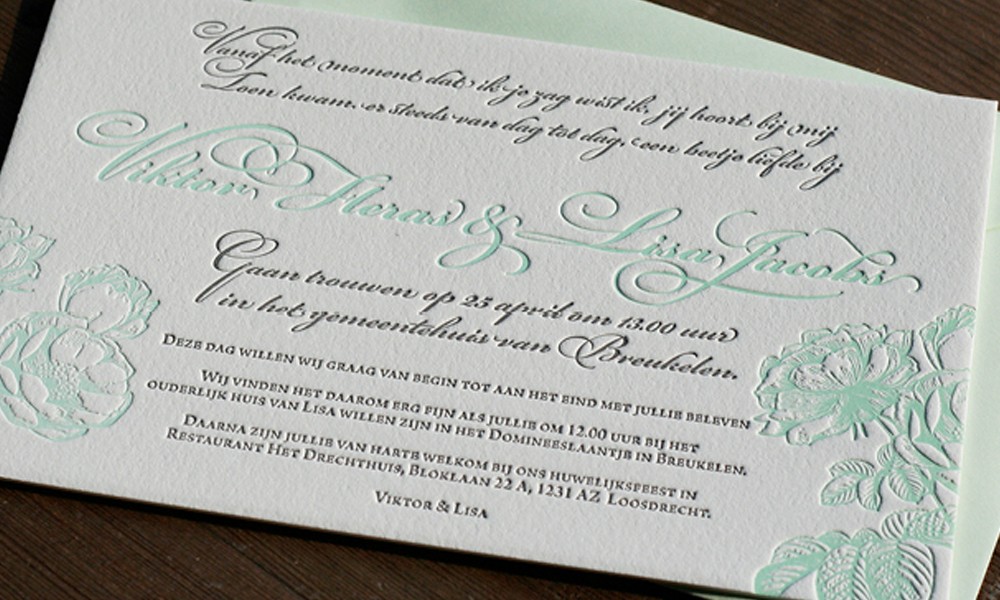 Vanaf het moment dat ik je zag wist ik, jij hoort bij mij
Toen kwam er steeds van dag tot dag, een beetje liefde bij
Viktor Floras & Lisa Jacobs
Gaan trouwen op 25 april om 13.00 uur
in het gemeentehuis van Breukelen.
Deze dag willen wij graag van begin tot aan het eind met jullie beleven
Wij vinden het daarom erg fijn als jullie om 12.00 uur bij het
ouderlijk huis van Lisa willen zijn in het Domineeslaantje in Breukelen.
Daarna zijn jullie van harte welkom bij ons huwelijksfeest in
Restaurant Het Drechthuis, Bloklaan 22 A, 1231 AZ Loosdrecht.
Viktor & Lisa